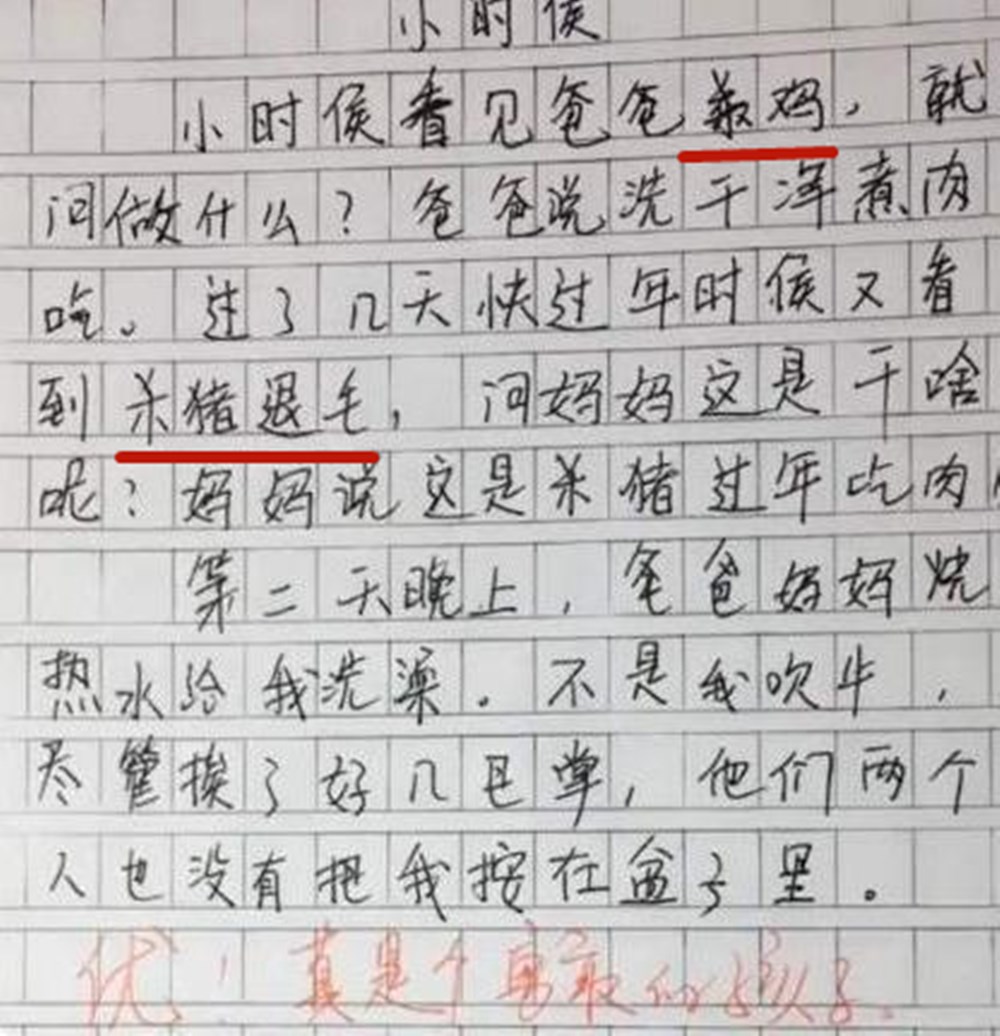 小时侯
小时侯看见爸爸杀鸡,就
问做什么?爸爸说洗干净煮肉
吃。过了几天快过年时侯又看
到杀猪退毛,问妈妈这是干啥
呢?妈妈说这是杀猪过年吃肉
第二天晚上,爸爸妈妈烧
热水给我洗澡。不是我吹牛,
尽管挨了好几巴掌,他们两个
人也没有把我按在盆子里。
优!真是个勇敢的孩子。